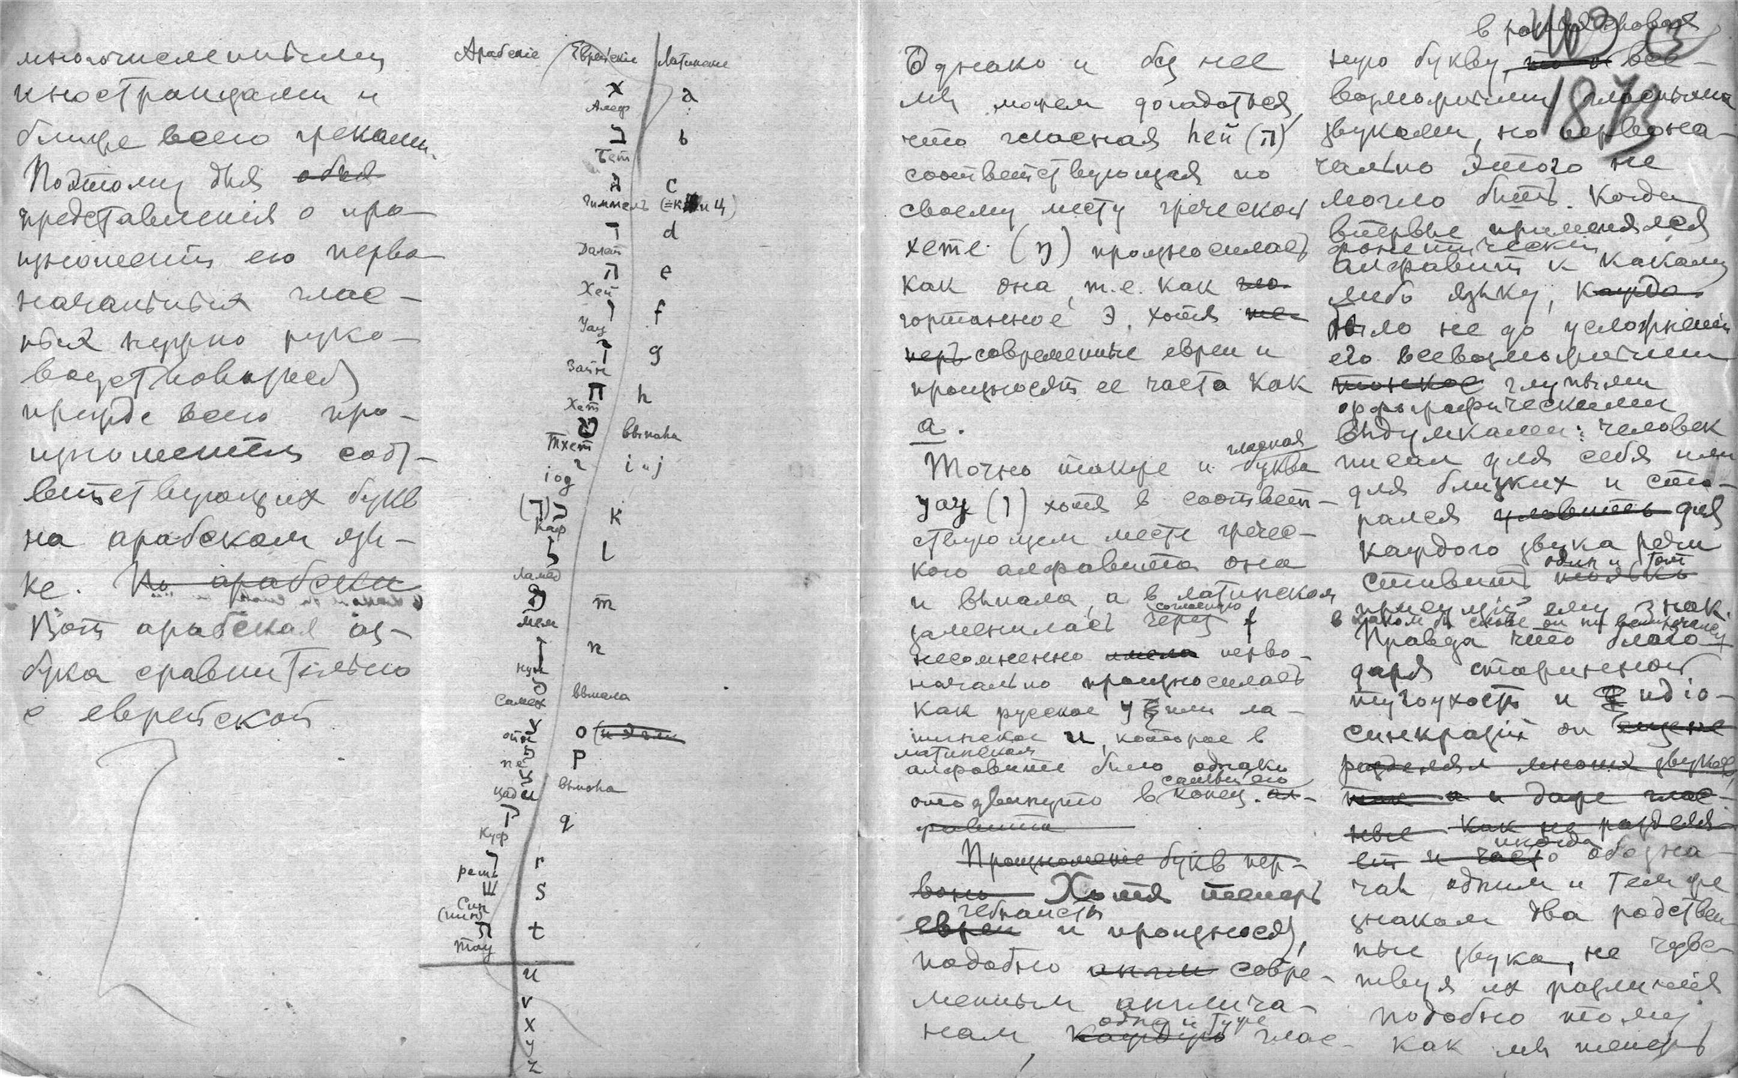 многочисленными
иностранцами и
ближе всего греками.
Поэтому для
представления о про-
изношении его перво-
начальных глас-
ных нужно руко-
водствоваться
прежде всего про-
изношением соот-
ветствующих букв
на арабском язы-
ке. По арабски
Вот арабская аз-
бука сравнительно
с еврейской
Арабские Еврейские Латинские
א a
Алеф
ב b
Бет
ג c
гиммель (=к и ц)
ד d
Далет
ה e
Хей
ו f
Уау
ז g
Заин
ח h
Хет
ט выпала
Тхет
י i и j
iод
(ך) כ k
Каф
ל l
Ламед
מ m
мем
נ n
нун
ס выпала
Самех
ע o
פ p
пе
צ выпала
цади
ק q
Куф
ר r
реш
ש s
Син
(шин)
ת t
тау
u
v
x
y
z
Однако и без нее
мы можем догадаться,
что гласная hей (ה)
соответствующая по
своему месту греческой
хете (η) произносилась
как она, т.е. как
гортанное Э, хотя те-
перь современные евреи и
произносят ее часто как
а.
гласная
Точно также и буква
уау (ו) хотя в соответ-
ствующем месте гречес-
кого алфавита она
и выпала, а в латинском
согласную
заменилась через f
несомненно имела перво-
начально произносилась
как русское у или ла-
тинское u, которое в
латинском
алфавите было однако
самый его
отодвинуто в конец. ал-
фавита
Произношение букв пер-
вон- Хотя теперь
гебраисты
евреи и произносят,
подобно совре-
менным англича-
одну и туже
нам каждую глас-
1873
ную букву, все-
возможными гласными
звуками, но первона-
чально этого не
могло быть. Когда
впервые применялся
фонетический
алфавит к какому
либо языку,
было не до усложнений
его всевозможными
глупыми
орфографическими
выдумками: человек
писал для себя или
для близких и ста-
рался уловить для
каждого звука речи
один и тот
ставить
знак.
в каком бы слове он ни встречался
Правда что благо-
даря старинной
тугоухости и идiо-
синкразiи он
разделял многих звуков,
так а и даже глас-
ные как не разделя-
иногда
ет и часто обозна-
чал одним и тем же
знаком два родствен
ные звука, не чувс-
твуя их различия
подобно тому,
как мы теперь